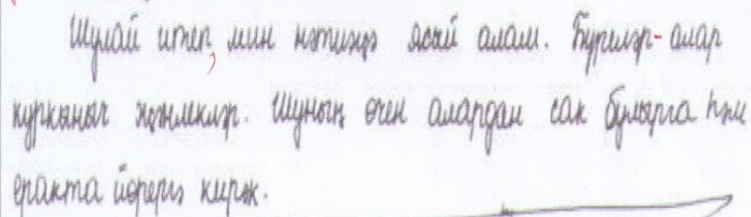 Шулай итеп, мин нәтиҗә ясый алам. Бүреләр - алар
куркыныч җәнлекләр. Шуның өчен алардан сак булырга һәм
еракта йөрергә кирәк.